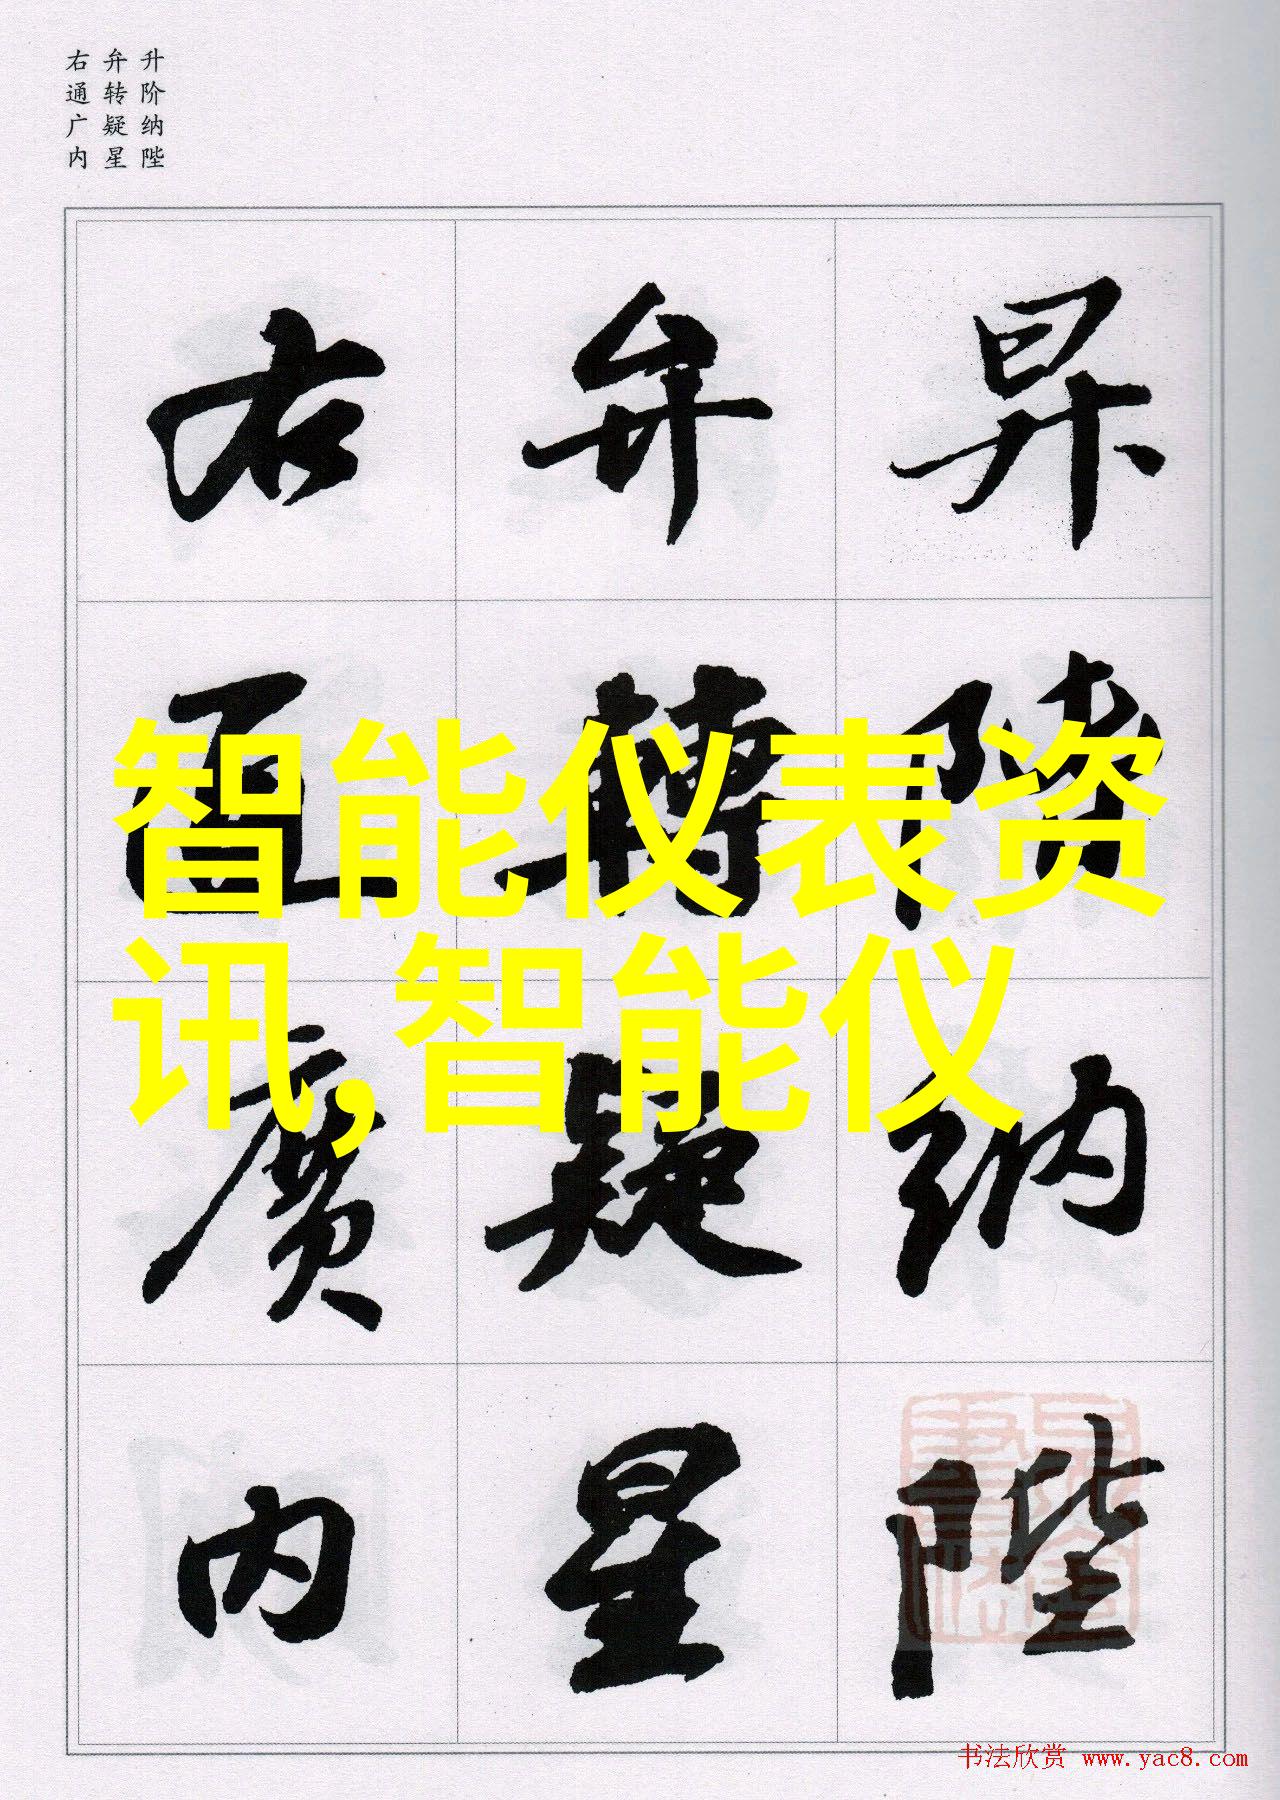 升阶纳陛
弁转疑星
右通广内
昇階納陛
弁轉疑星
右通廣内
智能仪表资
讯,智能仪
书法欣赏 www.yac8.com